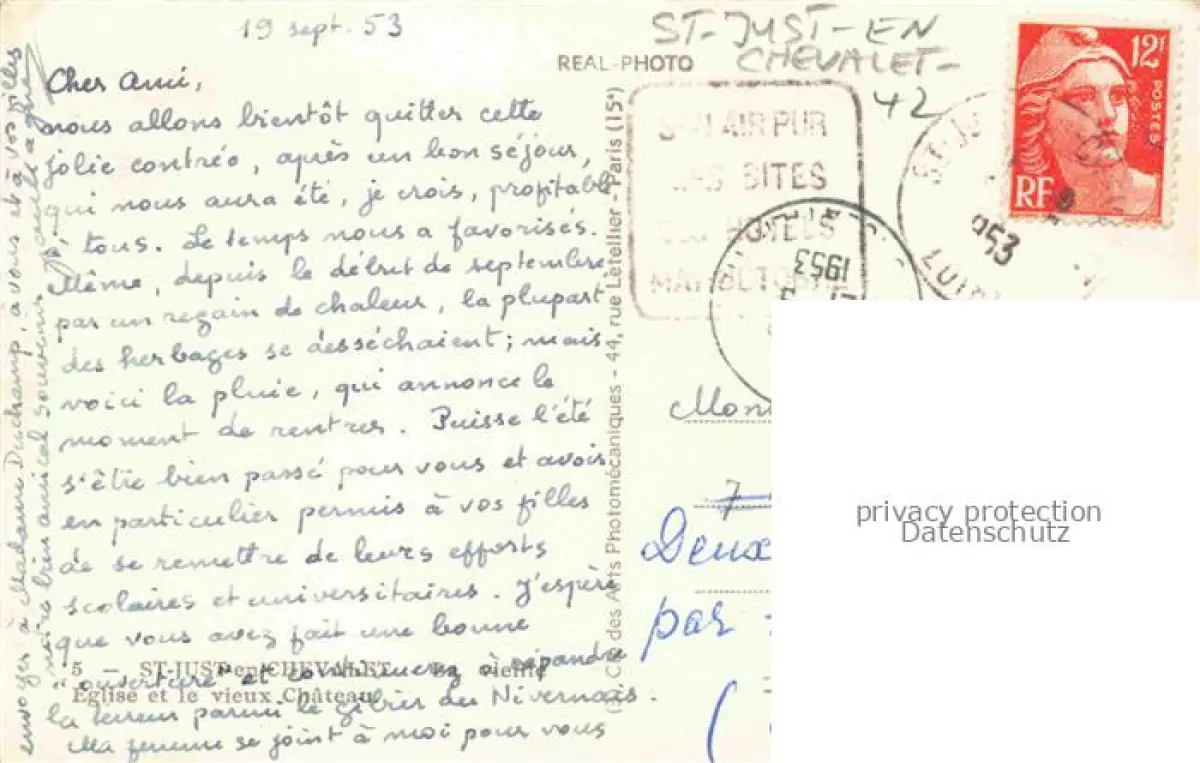 19 sept. 53
Cher Ami,
nous allons bientôt quitter cette
jolie contrée, après un bon séjour,
qui nous aura été, je crois, profitable
à tous. Le temps nous a favorisés.
Même, depuis le début de septembre
par un regain de chaleur, la plupart
des herbages se desséchaient ; mais
voici la pluie, qui annonce le
moment de rentrer. Puisse l'été
s'être bien passé pour vous et avoir
en particulier permis à vos filles
de se remettre de leurs efforts
scolaires et universitaires. J'espère
que vous avez fait une bonne
"ouverture" et continuerez à répandre
la terreur parmi le gibier du Nivernais.
Ma femme se joint à moi pour vous
envoyer à Madame Duchamp, à vous et à vos filles
notre très amical souvenir
5 — ST-JUST-en-CHEVALET La vieille
Eglise et le vieux Château
REAL-PHOTO
Cie des Arts Photomécaniques - 44, rue Letellier - Paris (15e)
ST-JUST-EN
CHEVALET-
42
SON AIR PUR
SES SITES
SES HOTELS
MAI-OCTOBRE
12F
POSTES
RF
ST-JU
953
1953
Mon
7
Deux
par
(
privacy protection
Datenschutz